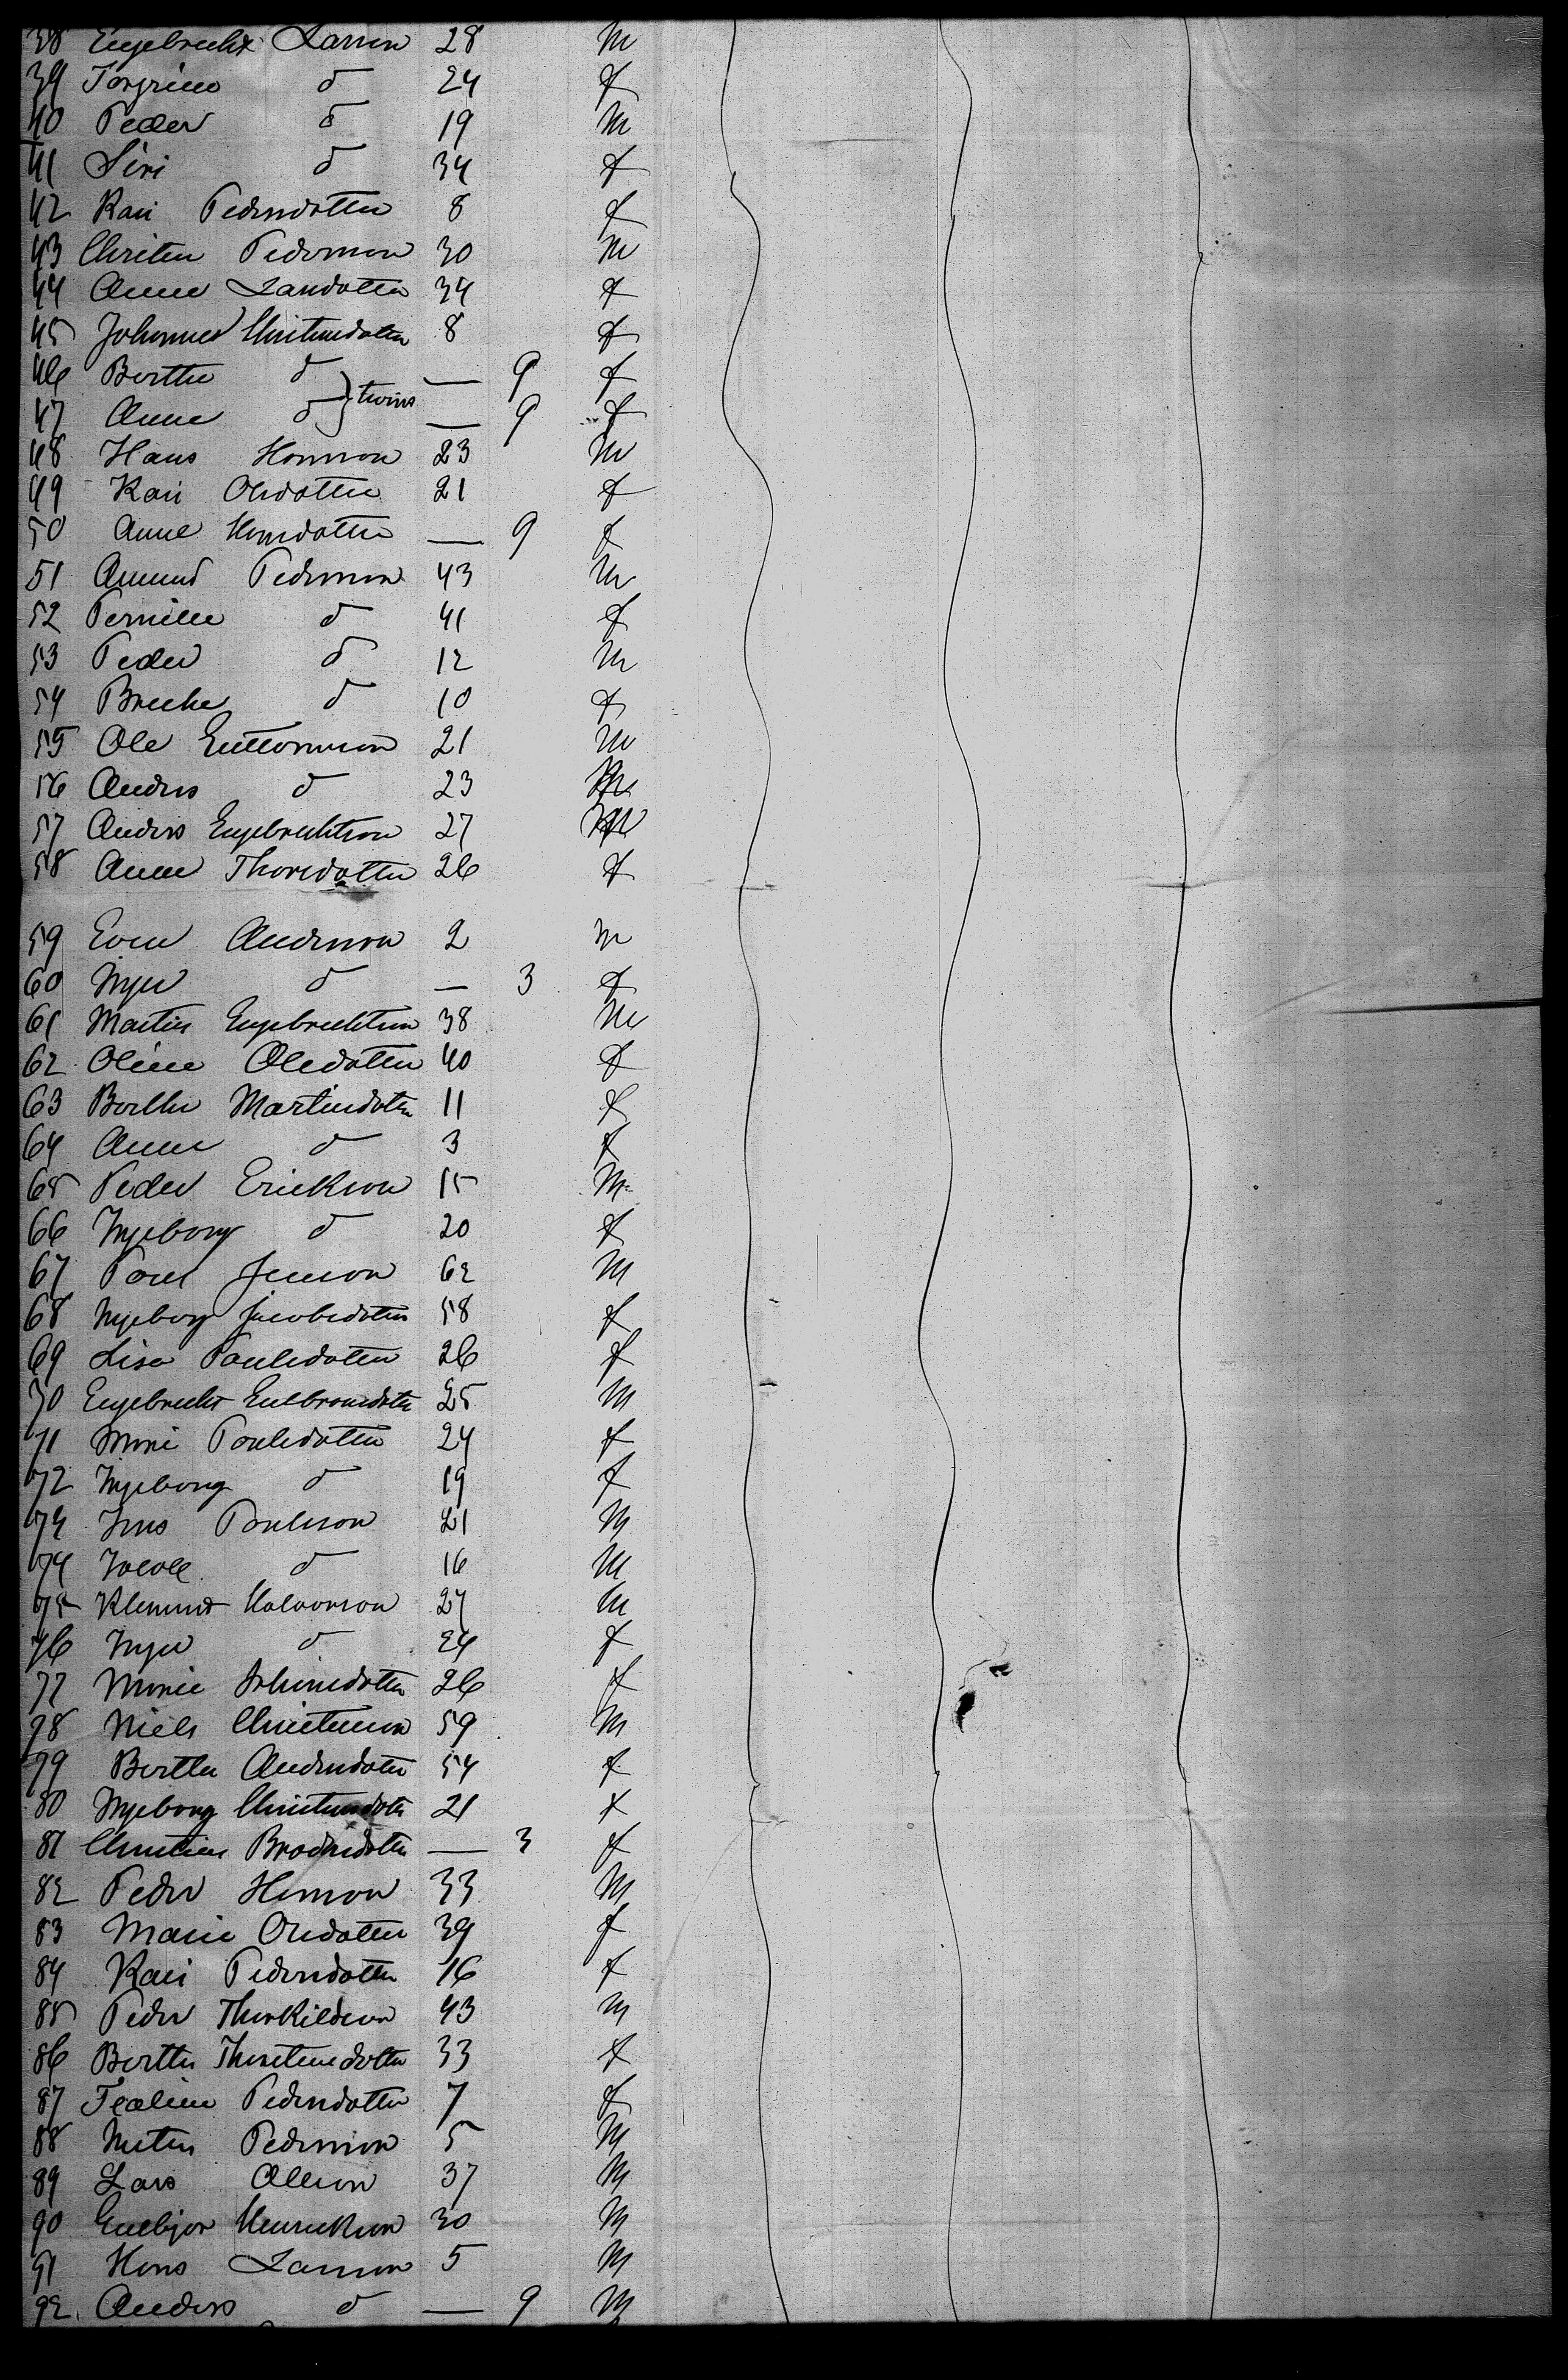 38 Engebrecht Larson 28 m
39 Torgrine d 24 f
40 Peder d 19 m
41 Siri d 34 f
42 Kari Pedersdatter 8 f
43 Christen Pederson 30 m
44 Anne Larsdatter 34 f
45 Johanne Christensdatter 8 f
46 Berthe d } twins — 9 f
47 Anne d — 9 f
48 Hans Hanson 23 m
49 Kari Olesdatter 21 f
50 Anne Hansdatter — 9 f
51 Amund Pederson 43 m
52 Pernille d 41 f
53 Peder d 12 m
54 d 10 f
55 Ole Guttormson 21 m
56 Anders d 23 m
57 Anders Engebrechtson 27 m
58 Anne Thoresdatter 26 f
59 Even Anderson 2 m
60 Inger d — 3 f
61 Martin Engebrechtson 38 m
62 Oline Oledatter 40 f
63 Berthe Martinsdatter 11 f
64 Anne d 3 f
65 Peder Erickson 15 m
66 Ingeborg d 20 f
67 Poul Jenson 62 m
68 Ingeborg Jacobsdatter 58 f
69 Lisa Poulsdatter 26 f
70 Engebrecht 25 m
71 Poulsdatter 24 f
72 Ingeborg d 19 f
73 Jens Poulson 21 m
74 Jacob d 16 m
75 Klemmet Halvorson 27 m
76 Inger d 24 f
77 26 f
78 Niels Christenson 59 m
79 Berthe Andersdatter 54 f
80 Ingeborg Christensdatter 21 f
81 — 3 f
82 Peder Hanson 33 m
83 Marie Olesdatter 39 f
84 Kari Pedersdatter 16 f
85 Peder Thorkildson 43 m
86 Berthe Thorstensdatter 33 f
87 Pedersdatter 7 f
88 Pederson 5 m
89 Lars Olleson 37 m
90 Gulbjor Henrickson 30 m
91 Hans Larson 5 m
92. Anders d — 9 m